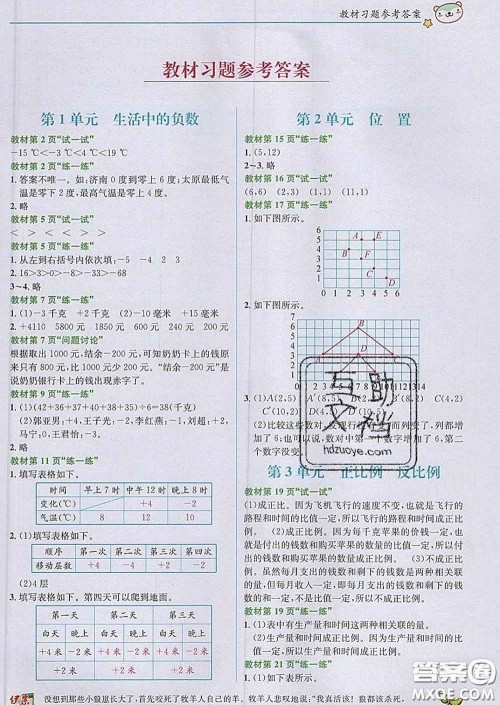 教材习题参考答案
教材习题参考答案
第1单元 生活中的负数
教材第2页“试一试”
-15 ℃<-3 ℃<4 ℃<19 ℃
教材第2页“练一练”
1. 答案不唯一。如:济南0度到零上6度;太原最低气
温是零下2度,最高气温是零上4度。
2. 略
教材第5页“试一试”
< > < > > >
教材第5页“练一练”
1. 从左到右括号内依次填:-5 -4 2 3
2. 16>3>0>-3>-8>-16
3~4. 略
教材第7页“练一练”
1. (1)-3千克 +2千克 (2)-10毫米 +15毫米
2. +4110 5800元 1850元 600元 250元
教材第7页“问题讨论”
根据取出1000元,结余-200元,可知奶奶卡上的钱原
来只有800元,比1000元少200元。“结余-200元”
是说奶奶银行卡上的钱出现赤字了。
教材第9页“练一练”
1. (1)(42+36+37+40+38+35)÷6=38(千克)
(2)郭亚男:+4;王子光:-2;李红燕:-1;刘超:+2;
马宁:0;王君怡:-3。
教材第11页“练一练”
1. 填写表格如下。
时间 早上7时 中午12时 晚上8时
变化(℃) +4 -2
气温(℃) 8 12 10
2. (1)填写表格如下。
顺序 第一次 第二次 第三次 第四次
移动层数 +4 -2 +4 -2
(2)4层
3. 填写表格如下。第四天可以爬到地面。
第一天 第二天 第三天
白天 晚上 白天 晚上 白天 晚上
+4米 -2米 +4米 -2米 +4米 -2米
+2米 +2米 +2米
第2单元 位 置
教材第15页“练一练”
1. (5,12)
2~3. 略
教材第16页“试一试”
(6,6) (2,3) (1,1) (11,1)
教材第17页“练一练”
1. 如下图所示。
2. 如下图所示。
3. (1)A(5,5)
(2)比较这些数对,发现
第3单元 正比例 反比例
教材第19页“试一试”
(1)成正比例。因为飞机飞行的速度不变,也就是飞行的
路程和时间的比值一定,所以飞行的路程和时间成正比
例。 (2)成正比例。因为每千克苹果的价钱一定,也
就是付出的钱数和购买苹果的数量的比值一定,所以付
出的钱数和购买苹果的数量成正比例。 (3)不成正比
例。虽然每月支出的钱数和剩余的钱数是两种相关联
的量,但是每月支出的钱数与剩余的钱数的和一定,而
不是比值一定,所以不成正比例。
教材第19页“练一练”
1. (1)表中有生产量和时间这两种相关联的量。
(2)生产量和时间成正比例。
教材第21页“练一练”
没想到那些小狼崽长大了,首先咬死了牧羊人自己的羊。牧羊人悲叹地说:“我真活该!狼都该杀死,
互助
文档
hdzuoye.com
答案圈
MXQE.COM